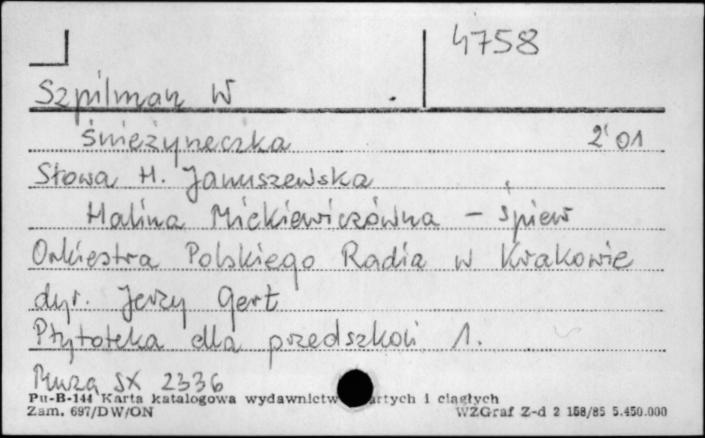 4758
Szpilman W
Śnieżyneczka 2'01
Słowa H. Januszewska
Halina Mickiewiczówna - śpiew
Orkiestra Polskiego Radia w Krakowie
dyr. Jerzy Gert
Płytoteka dla przedszkoli 1.
Muza SX 2336
Pu-B-144 Karta katalogowa wydawnictw artych i ciągłych
Zam. 697/DW/ON WZGraf Z-d 2 158/85 5.450.000